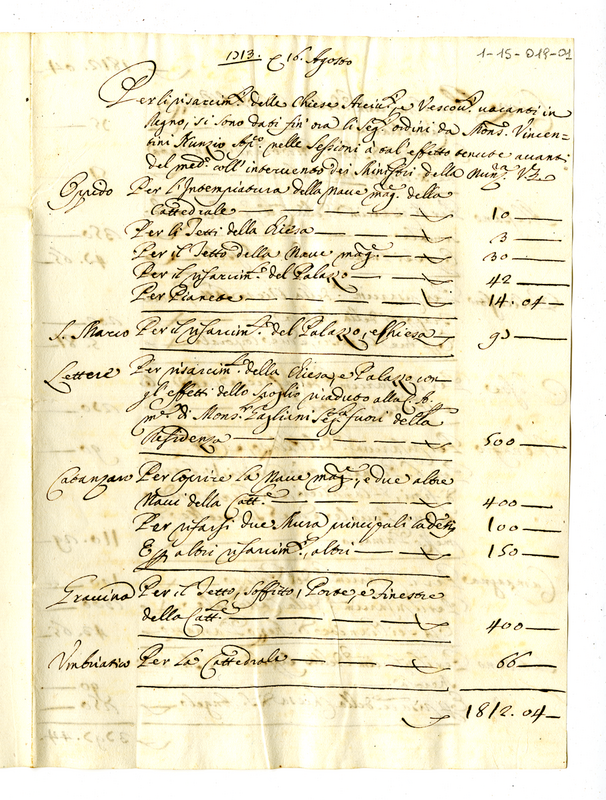 1-15-019-01
1713. 16. Agosto
Per li risarcim.ti delle Chiese Arciv.li, e Vescov.li vacanti in
Regno, si sono dati fin' ora li seg.ti ordini da Mons.r Vincen=
tini Nunzio Ap.co nelle Sessioni à tal' effetto tenute avanti
del med.o coll' intervento dei Ministri della Nun.ra
Oppido Per l'Intempiatura della Nave mag.e della
Cattedrale — 10 —
Per li Tetti della Chiesa — 3 —
Per il Tetto della Nave mag.e — 30 —
Per il risarcim.to del Palazzo — 42 —
Per Pianete — 14. 04 —
S. Marco Per il risarcim.to del Palazzo, e Chiesa — 90 —
Lettere Per risarcim.to della Chiesa, e Palazzo con
gli effetti dello Spoglio
di Mons.r Pagliani fuori della
Residenza — 500 —
Catanzaro Per coprire la Nave mag.e, e due altre
Navi della Catt.e — 400 —
Per rifarsi due Mura principali — 100 —
E p altri risarcim.ti, altri — 150 —
Gravina Per il Tetto, Soffitto, Porte, e Finestre
della Catt.le — 400 —
Umbriatico Per la Cattedrale — 66 —
1812. 04 —